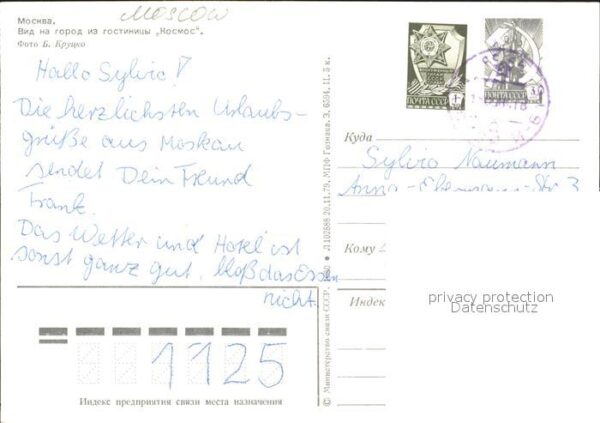 Moscow
Москва.
Вид на город из гостиницы „Космос“.
Фото Б. Круцко
Hallo Sylvio!
Die herzlichsten Urlaubs-
grüße aus Moskau
sendet Dein Freund
Frank.
Das Wetter und Hotel ist
sonst ganz gut, bloß das Essen
nicht.
1125
Индекс предприятия связи места назначения
© Министерство связи СССР. Л102888 20.11.79. МПФ Гознака. З. 6594. Ц. 5 к.
ПОЧТА СССР 1к
ПОЧТА СССР
Куда
Sylvio Naumann
Anna- -Str. 3
Кому
Индекс
privacy protection
Datenschutz